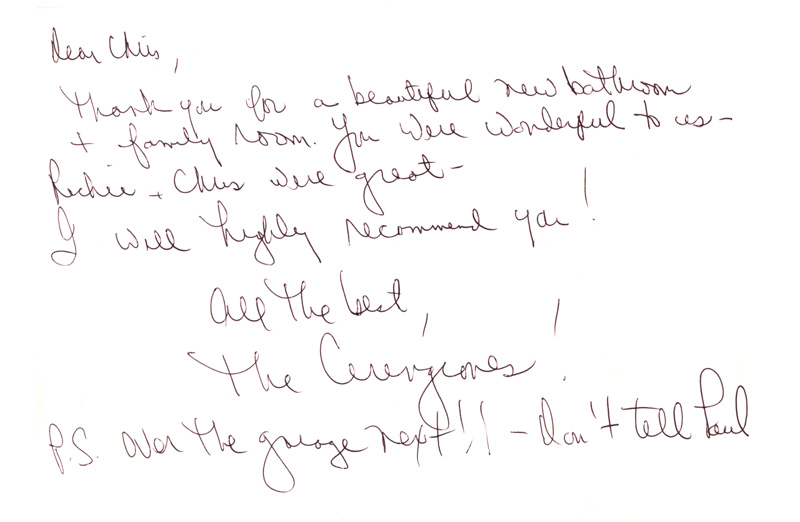 Dear Chris,
Thank you for a beautiful new bathroom
+ family room. You were wonderful to us –
Richie + Chris were great –
I will highly recommend you!
All the best,
The !
P.S. over the garage next!!! – don't tell Paul